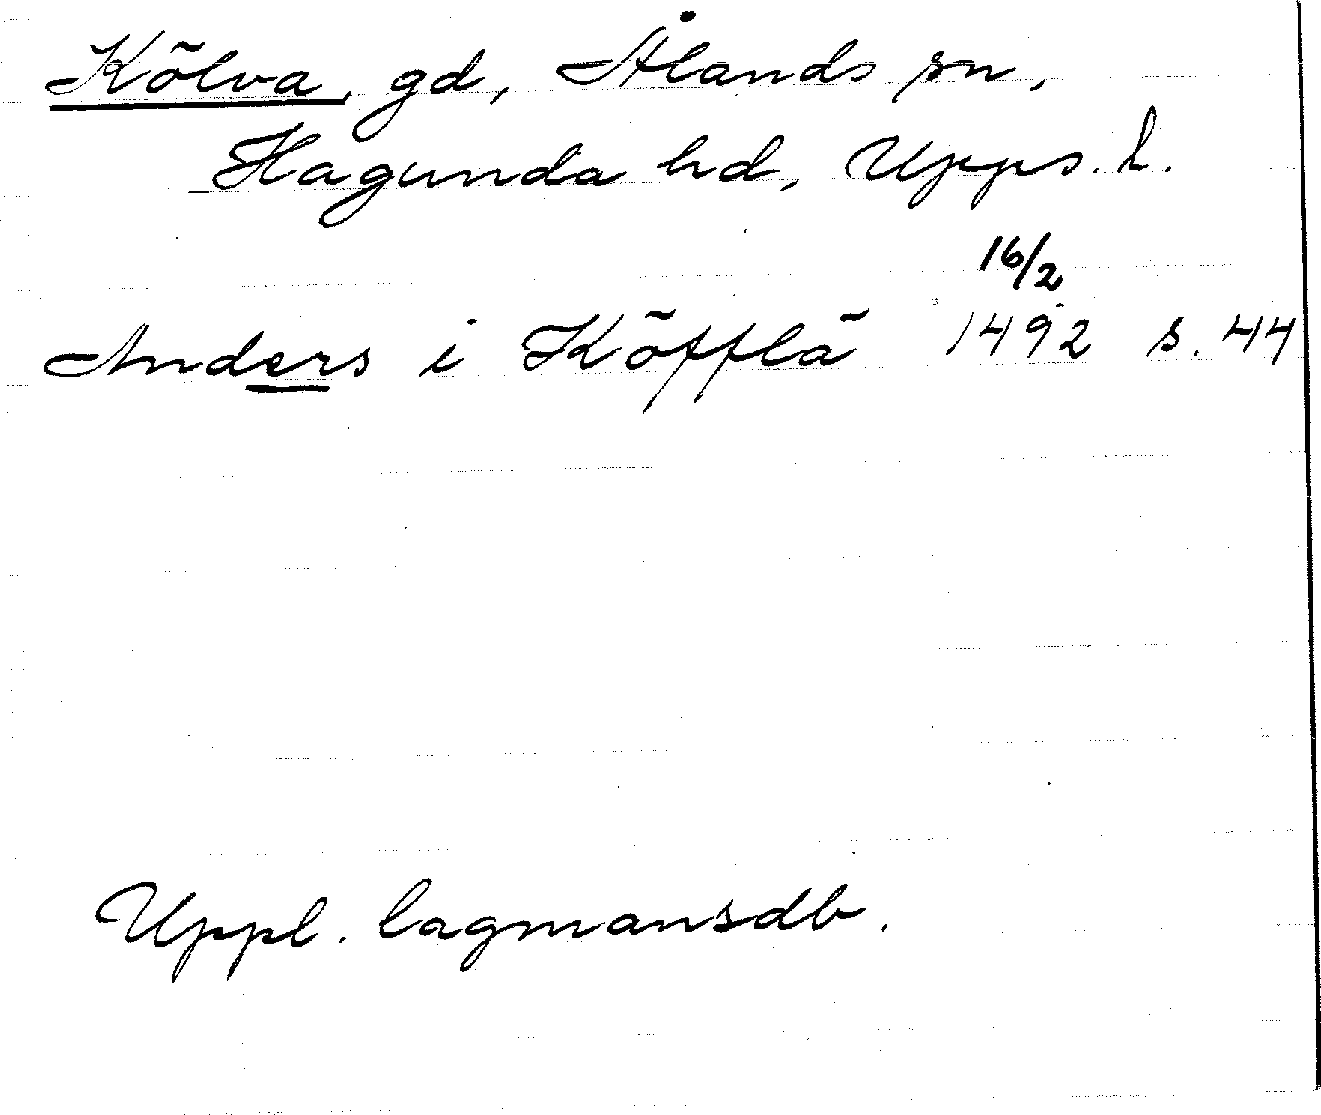 Kölva, gd, Ålands sn,
Hagunda hd, Upps. l.
16/2
Anders i Köfflä 1492 s. 44
Uppl. lagmansdb.